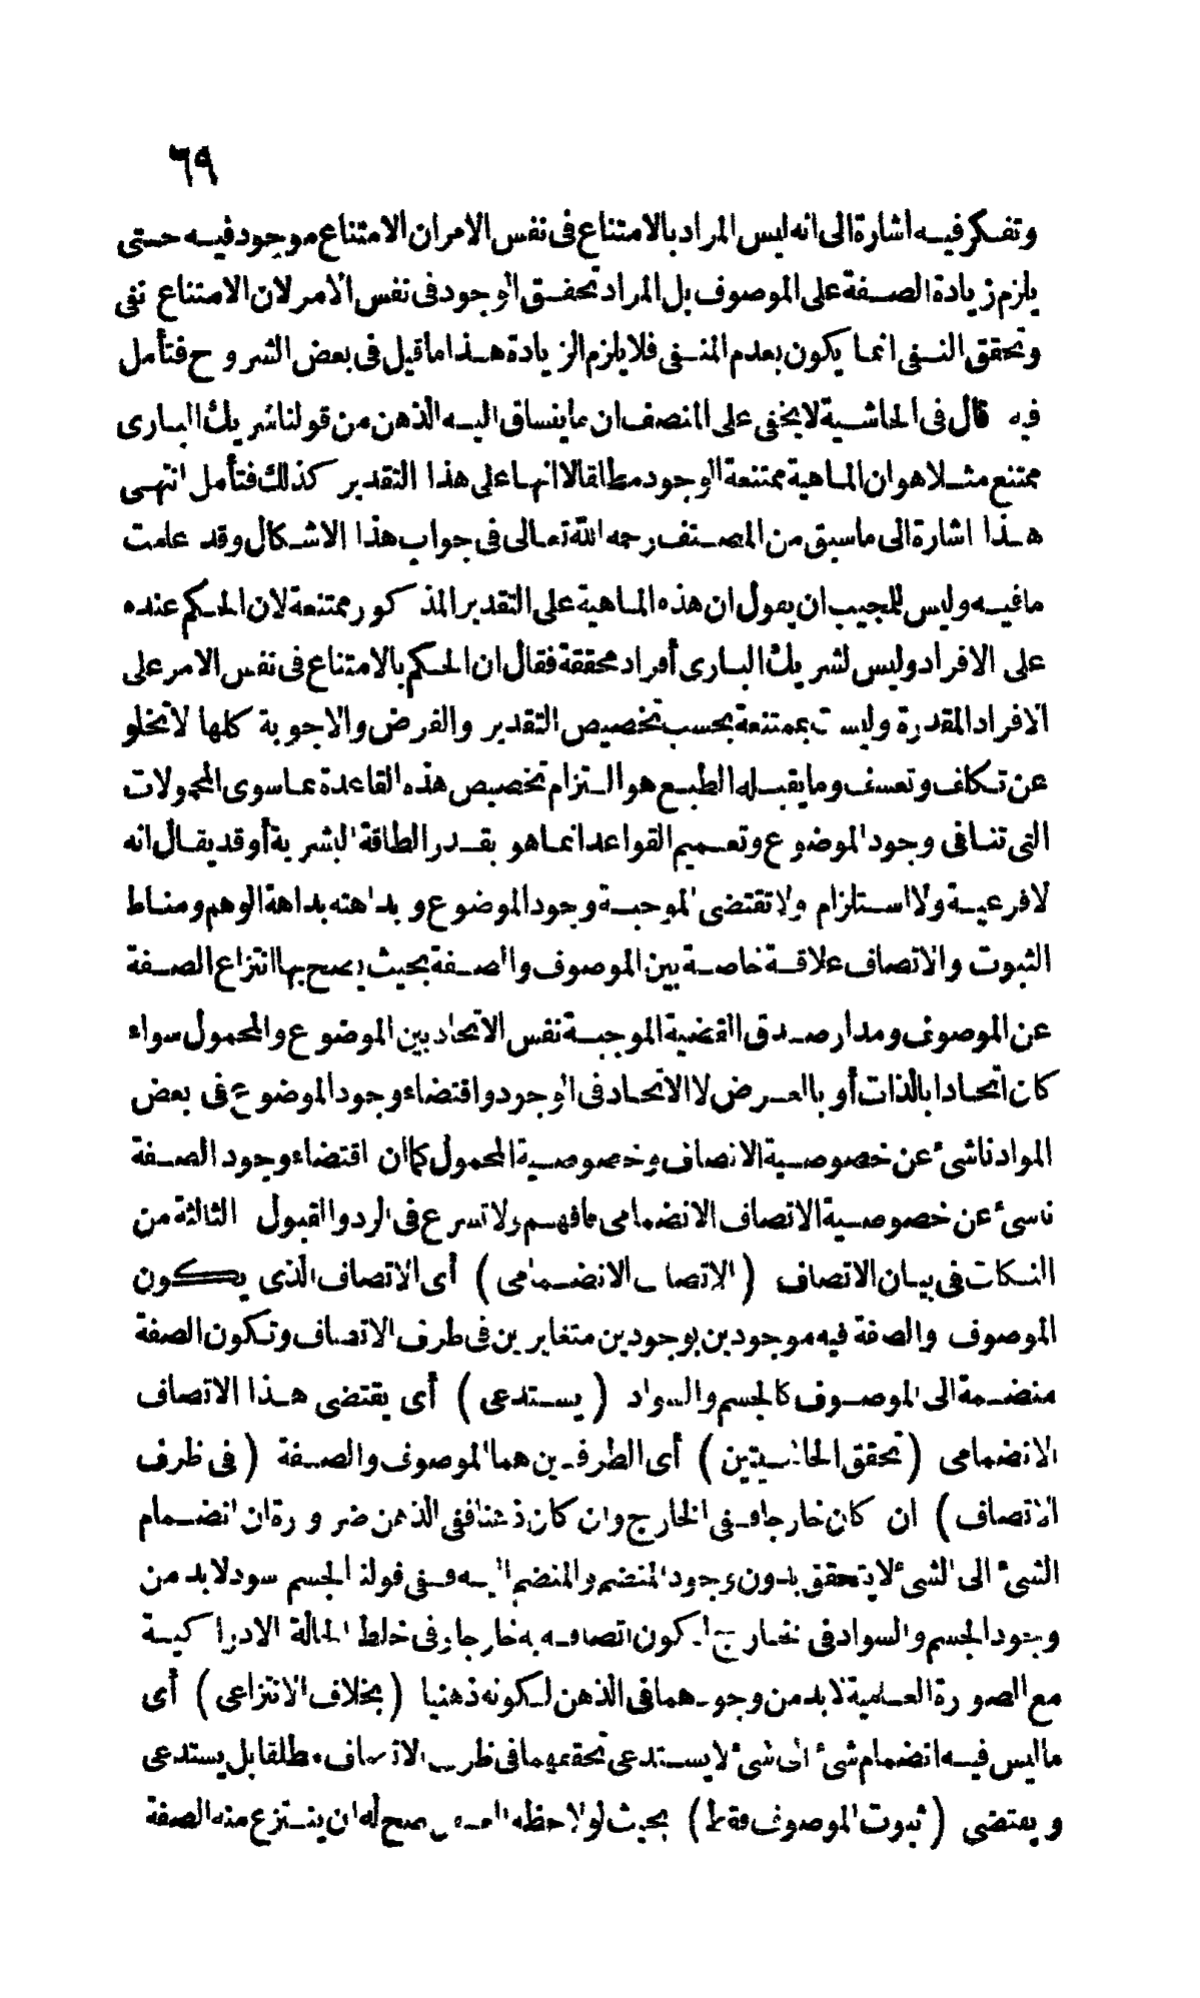 ٦٩
وتفكر فيه اشارة الى انه ليس المراد بالامتناع فى نفس الامر ان الامتناع موجود فيه حتى
يلزم زيادة الصفة على الموصوف بل المراد تحقق الوجود فى نفس الامر لان الامتناع نفى
وتحقق النفى انما يكون بعدم المنفى فلا يلزم الزيادة هذا ما قيل فى بعض الشروح فتأمل
فيه قال فى الحاشية لا يخفى على المنصف ان ما ينساق اليه الذهن من قولنا شريك البارى
ممتنع مثلا هو ان الماهية ممتنعة الوجود مطلقا لا انها على هذا التقدير كذلك فتأمل انتهى
هذا اشارة الى ما سبق من المصنف رحمه الله تعالى فى جواب هذا الاشكال وقد علمت
ما فيه وليس للمجيب ان يقول ان هذه الماهية على التقدير المذكور ممتنعة لان الحكم عنده
على الافراد وليس لشريك البارى أفراد محققة فقال ان الحكم بالامتناع فى نفس الامر على
الافراد المقدرة وليست بممتنعة بحسب تخصيص التقدير والفرض والاجوبة كلها لا تخلو
عن تكلف وتعسف وما يقبله الطبع هو التزام تخصيص هذه القاعدة عما سوى المحمولات
التى تنافى وجود الموضوع وتعميم القواعد انما هو بقدر الطاقة البشرية أو قد يقال انه
لا فرعية ولا استلزام ولا تقتضى الموجبة وجود الموضوع وبداهته بداهة الوهم ومناط
الثبوت والاتصاف علاقة خاصة بين الموصوف والصفة بحيث يصح بها انتزاع الصفة
عن الموصوف ومدار صدق القضية الموجبة نفس الاتحاد بين الموضوع والمحمول سواء
كان اتحادا بالذات أو بالعرض لا الاتحاد فى الوجود واقتضاء وجود الموضوع فى بعض
المواد ناشئ عن خصوصية الاتصاف وخصوصية المحمول كما ان اقتضاء وجود الصفة
ناسئ عن خصوصية الاتصاف الانضمامى فافهم ولا تسرع فى الرد والقبول الثالثة من
النكات فى بيان الاتصاف (الاتصاف الانضمامى) أى الاتصاف الذى يكون
الموصوف والصفة فيه موجودين بوجودين متغايرين فى ظرف الاتصاف وتكون الصفة
منضمة الى الموصوف كالجسم والسواد (يستدعى) أى يقتضى هذا الاتصاف
الانضمامى (تحقق الحاشيتين) أى الطرفين هما الموصوف والصفة (فى ظرف
الاتصاف) ان كان خارجا ففى الخارج وان كان ذهنا ففى الذهن ضرورة ان انضمام
الشئ الى الشئ لا يتحقق بدون وجود المنضم والمنضم اليه ففى قولنا الجسم اسود لا بد من
وجود الجسم والسواد فى الخارج لكون اتصافه به خارجا وفى خلط الحالة الادراكية
مع الصورة العلمية لا بد من وجودهما فى الذهن لكونه ذهنيا (بخلاف الانتزاعى) أى
ما ليس فيه انضمام شئ الى شئ لا يستدعى تحققهما فى ظرف الاتصاف مطلقا بل يستدعى
ويقتضى (ثبوت الموصوف فقط) بحيث لو لاحظه العقل صح له ان ينتزع منه الصفة